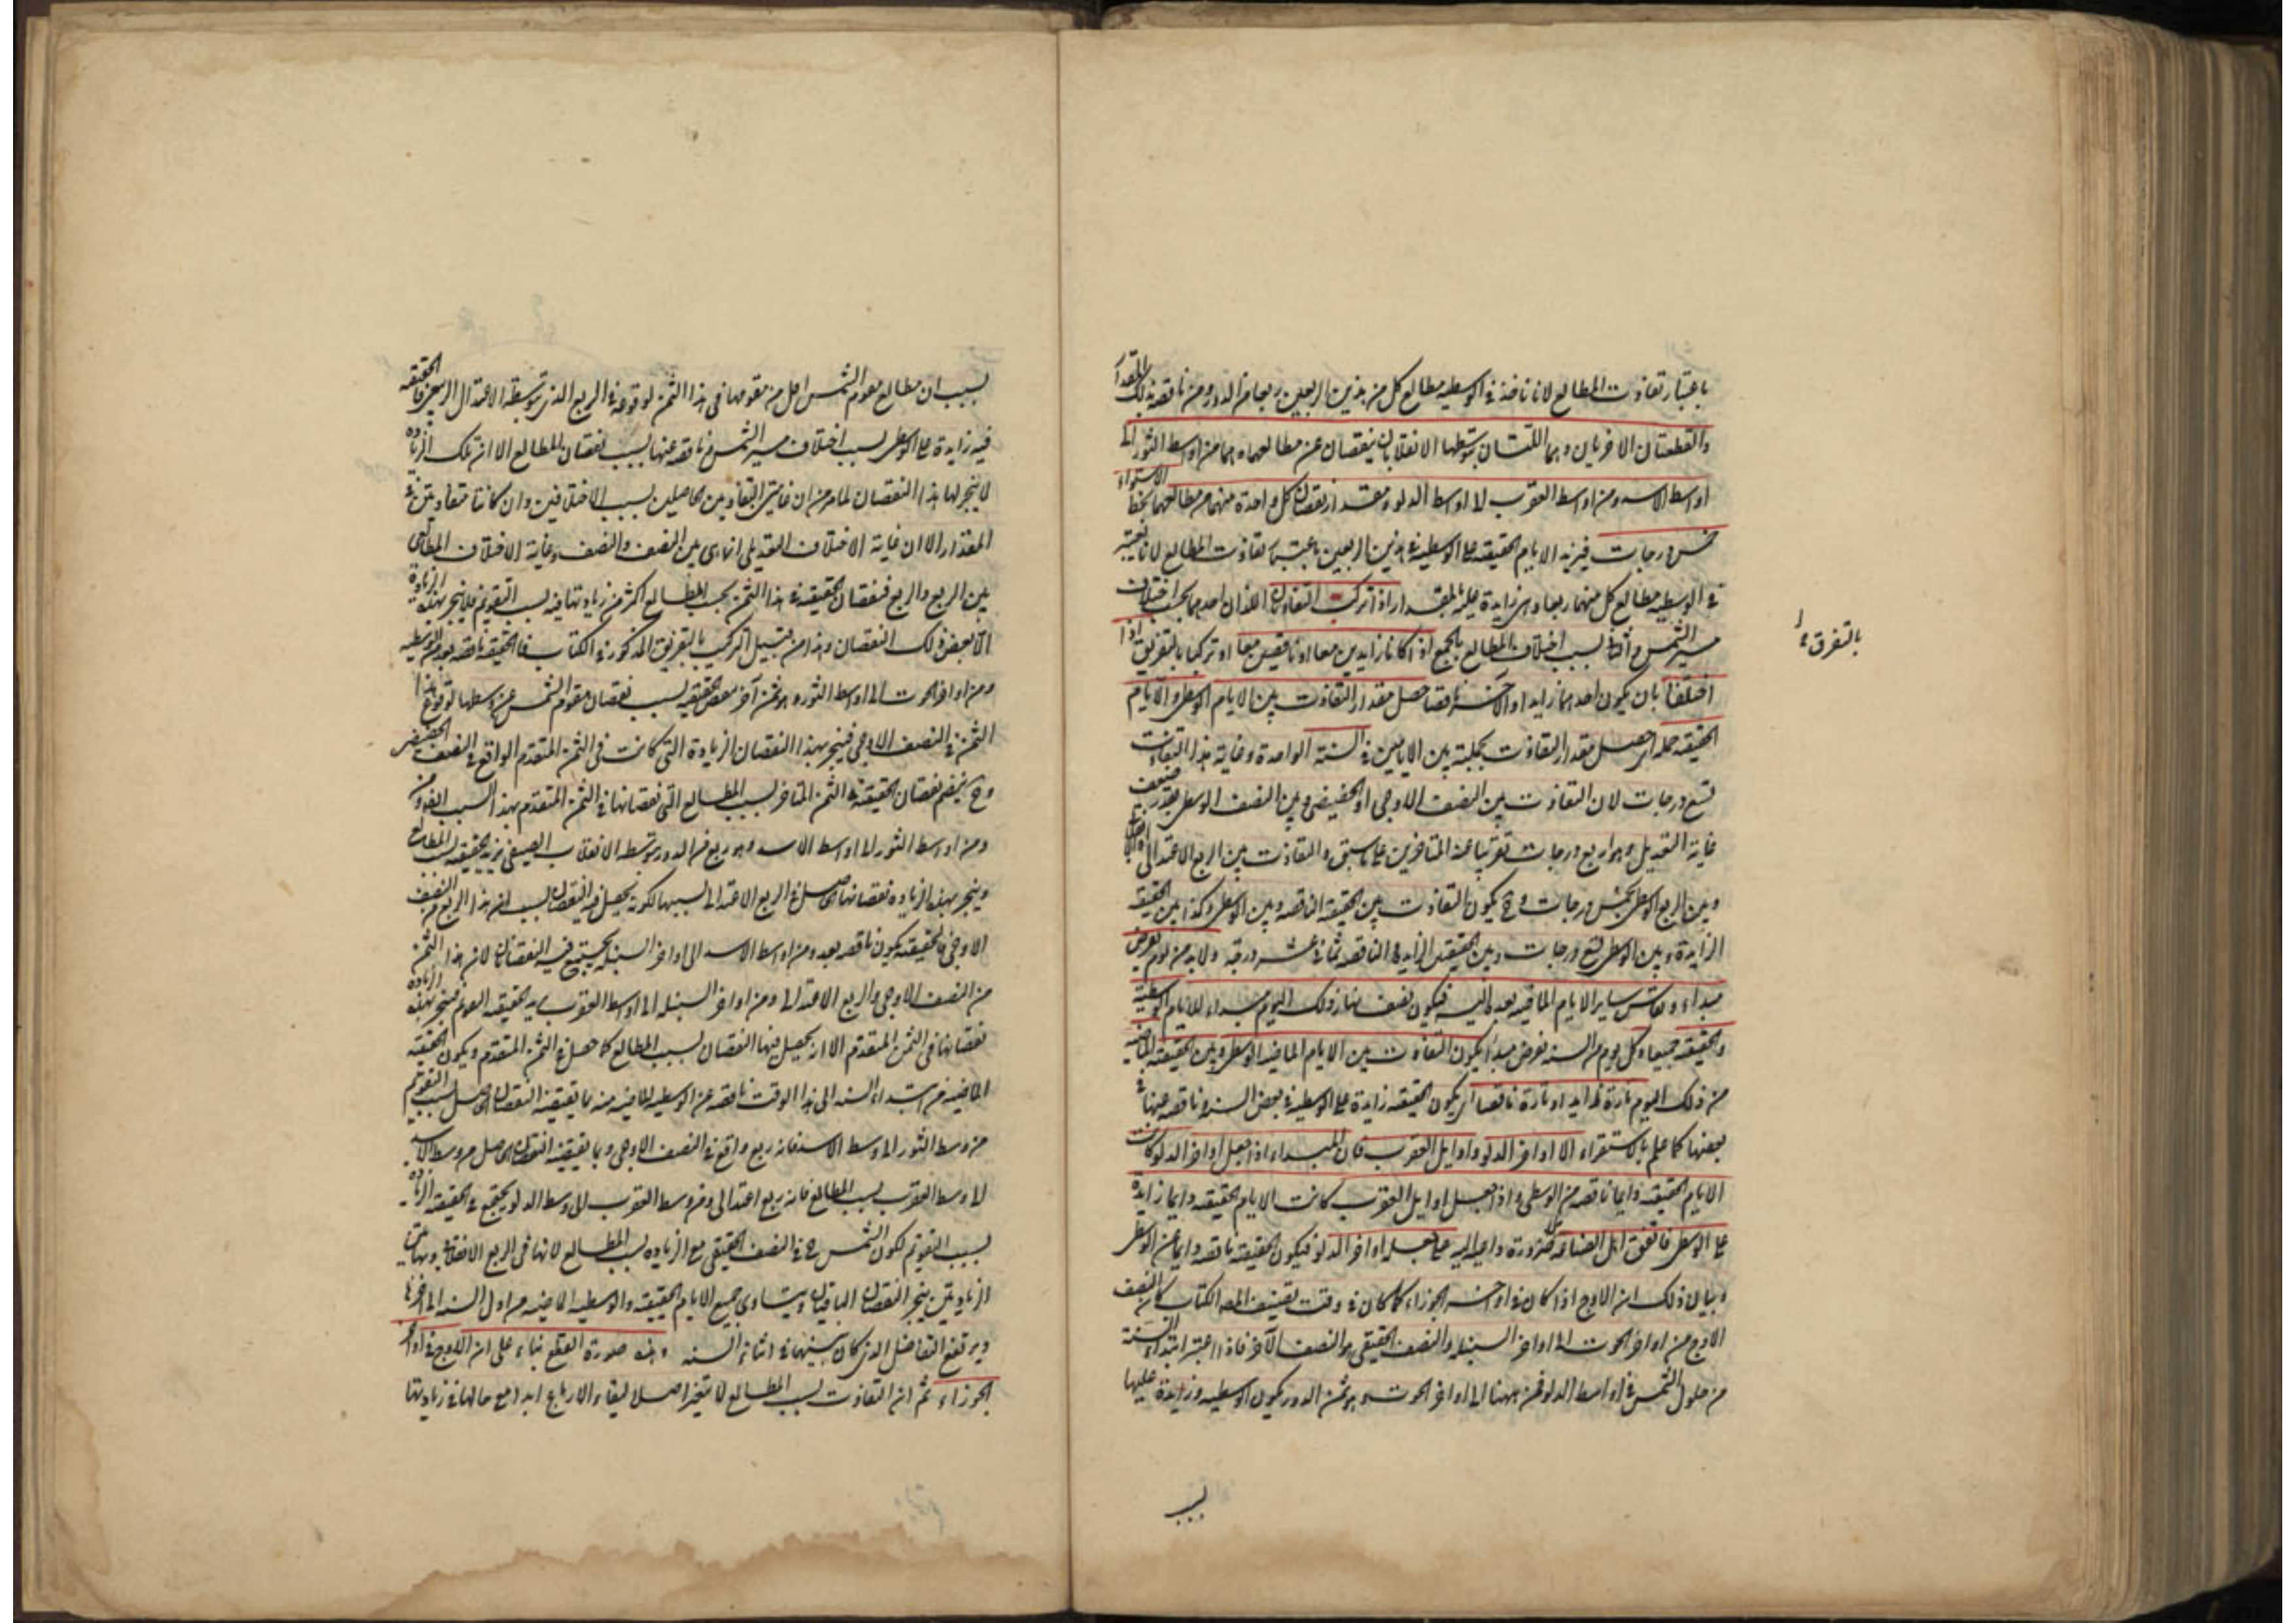 باعتبار تفاوت المطالع لانا ناخذ في الوسطية مطالع كل من هذين الربعين ربعا من الدور ومن ناقصة بذلك المقدار
والقطعتان الاخريان وهما اللتان يتوسطهما الانقلابان ينقصان عن مطالعهما وهما من اوسط الثور الى
اوسط الاسد ومن اوسط العقرب الى اوسط الدلو ومقدار نقصان كل واحدة منهما من مطالعهما بخط الاستواء
خمس درجات فيزيد الايام الحقيقية على الوسطية في هذين الربعين باعتبار تفاوت المطالع لانا نعتبر
في الوسطية مطالع كل منهما ربعا وهي زايدة عليه بالمقدار اذا تركب التفاوتان اللذان احدهما بحسب اختلاف
مسير الشمس والثاني بسبب اختلاف المطالع بالجمع اذا كانا زايدين معا او ناقصين معا او تركبا بالتفريق اذا
بالتفرق
اختلفا بان يكون احدهما زايدا والاخر ناقصا حصل مقدار التفاوت بين الايام الوسطى والايام
الحقيقية جملة اي حصل مقدار التفاوت بجملته بين الايامين في السنة الواحدة وغاية هذا التفاوت
تسع درجات لان التفاوت بين النصف الاوجي او الحضيضي وبين النصف الوسطي بقدر ضعف
غاية التعديل وهو اربع درجات تقريبا عند المتاخرين على ما سبق والتفاوت بين الربع الاعتدالي
وبين الربع الوسطي بخمس درجات وح يكون التفاوت بين الحقيقية الناقصة وبين الوسطى وكذا بين الحقيقية
الزايدة وبين الوسطى تسع درجات وبين الحقيقتين الزايدة والناقصة ثماني عشر درجة ولا بد من يوم يفرض
مبداء ويقاس ساير الايام الماضية بعده اليه فيكون نصف نهار ذلك اليوم مبداء للايام الوسطية
والحقيقية جميعا وكل يوم من السنة يفرض مبدأ يكون التفاوت بين الايام الماضية الوسطى وبين الحقيقية الماضية
من ذلك اليوم تارة زايدا وتارة ناقصا اي يكون الحقيقية زايدة على الوسطية في بعض السنة وناقصة عنها في
بعضها كما علم بالاستقراء الا اواخر الدلو واوايل العقرب فان المبداء اذا جعل اواخر الدلو كانت
الايام الحقيقية دايما ناقصة من الوسطى واذا جعل اوايل العقرب كانت الايام الحقيقية دايما زايدة
على الوسطى فاتفق اهل الصناعة ضرورة على جعله اواخر الدلو فيكون الحقيقية ناقصة دايما عن الوسطى
وبيان ذلك ان الاوج اذا كان في اواخر الجوزاء كما كان في وقت تصنيف المص الكتاب كان النصف
الاوج من اواخر الحوت الى اواخر السنبلة والنصف الحقيقي هو النصف الآخر فاذا اعتبر ابتداء السنة
من حلول الشمس في اواسط الدلو فمن ههنا الى اواخر الحوت وهو ثمن الدور يكون الوسطية زايدة عليها
بسبب
بسبب ان مطالع مقوم الشمس اقل من مقومها في هذا الثمن لوقوعه في الربع الذي يتوسطه الاعتدال الربيعي فالحقيقية
فيه زايدة على الوسطى بسبب اختلاف مسير الشمس وناقصة عنها بسبب نقصان المطالع الا ان تلك الزيادة
لا ينجبر بها هذا النقصان لما مر من ان غايتي التفاوتين الحاصلين بسبب الاختلافين وان كانتا متقاربتين في
المقدار الا ان غاية الاختلاف التعديلي انما هي بين النصف والنصف وغاية الاختلاف المطالعي
بين الربع والربع فنقصان الحقيقية في هذا الثمن بحسب المطالع اكثر من زيادتها فيه بسبب التقويم فلا ينجبر بهذه الزيادة
الا بعض ذلك النقصان وهذا من قبيل التركيب بالتفريق المذكور في الكتاب فالحقيقية ناقصة بعد من الوسطية
ومن اواخر الحوت الى اواسط الثور وهو ثمن آخر نقص الحقيقية بسبب نقصان مقوم الشمس عن وسطها لوقوع هذا
الثمن في النصف الاوجي فينجبر بهذا النقصان الزيادة التي كانت في الثمن المتقدم الواقع في النصف الحضيضي
وح ينضم نقصان الحقيقية في الثمن المتاخر بسبب المطالع الى نقصانها في الثمن المتقدم بهذا السبب ايضا
ومن اوسط الثور الى اوسط الاسد وهو ربع من الدور يتوسطه الانقلاب الصيفي يزيد الحقيقية بسبب المطالع
وينجبر بهذه الزيادة نقصانها الحاصل في الربع الاعتدالي بسببها لكونه يحصل فيه النقصان بسبب ان هذا الربع من النصف
الاوجي فالحقيقية يكون ناقصة بعد ومن اوسط الاسد الى اواخر السنبلة يجتمع فيه النقصانان لان هذا الثمن
من النصف الاوجي والربع الاعتدالي ومن اواخر السنبلة الى اوسط العقرب يزيد الحقيقية بالتقويم فينجبر بهذه الزيادة
نقصانها في الثمن المتقدم الا انه يحصل فيها النقصان بسبب المطالع كما حصل في الثمن المتقدم ويكون الحقيقية
الماضية من ابتداء السنة الى هذا الوقت ناقصة عن الوسطية الماضية منه بما يقتضيه النقصان الحاصل بسبب التقويم
من وسط الثور الى وسط الاسد فانه ربع واقع في النصف الاوجي وبما يقتضيه النقصان الحاصل من وسط الاسد
الى وسط العقرب بسبب المطالع فانه ربع اعتدالي ومن وسط العقرب الى وسط الدلو يجتمع في الحقيقية الزيادة
بسبب التقويم لكون الشمس ح في النصف الحقيقي مع الزيادة بسبب المطالع لانها في الربع الانقلابي وبهاتين
الزيادتين ينجبر النقصانان الباقيان ويتساوى جميع الايام الحقيقية والوسطية الماضية من اول السنة الى اخرها
ويرتفع التفاضل الذي كان بينهما في اثناء السنة وهذه صورة القطع بناء على ان الاوج في اواخر
الجوزاء ثم ان التفاوت بسبب المطالع لا يتغير اصلا لبقاء الارباع ابدا مع حالها في زيادتها